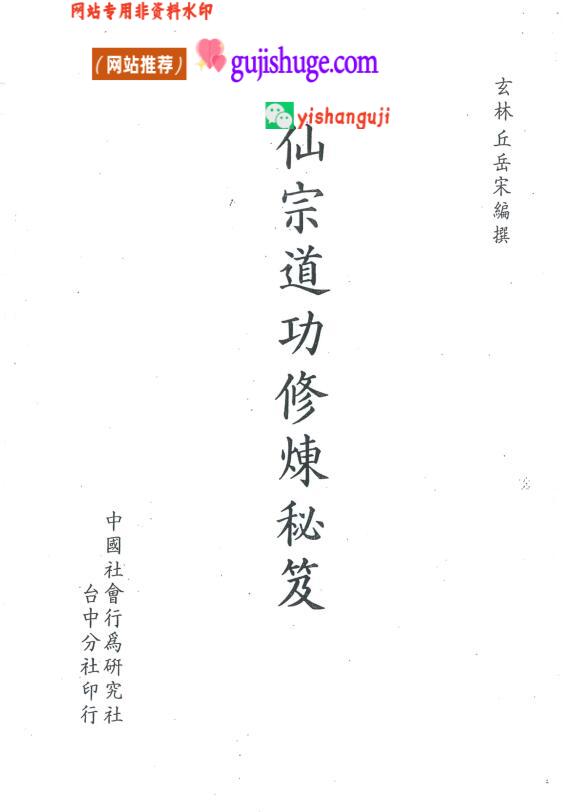 网站专用非资料水印
(网站推荐) gujishuge.com
yishanguji
玄林 丘岳宋編撰
仙宗道功修煉秘笈
中國社會行爲研究社
台中分社印行